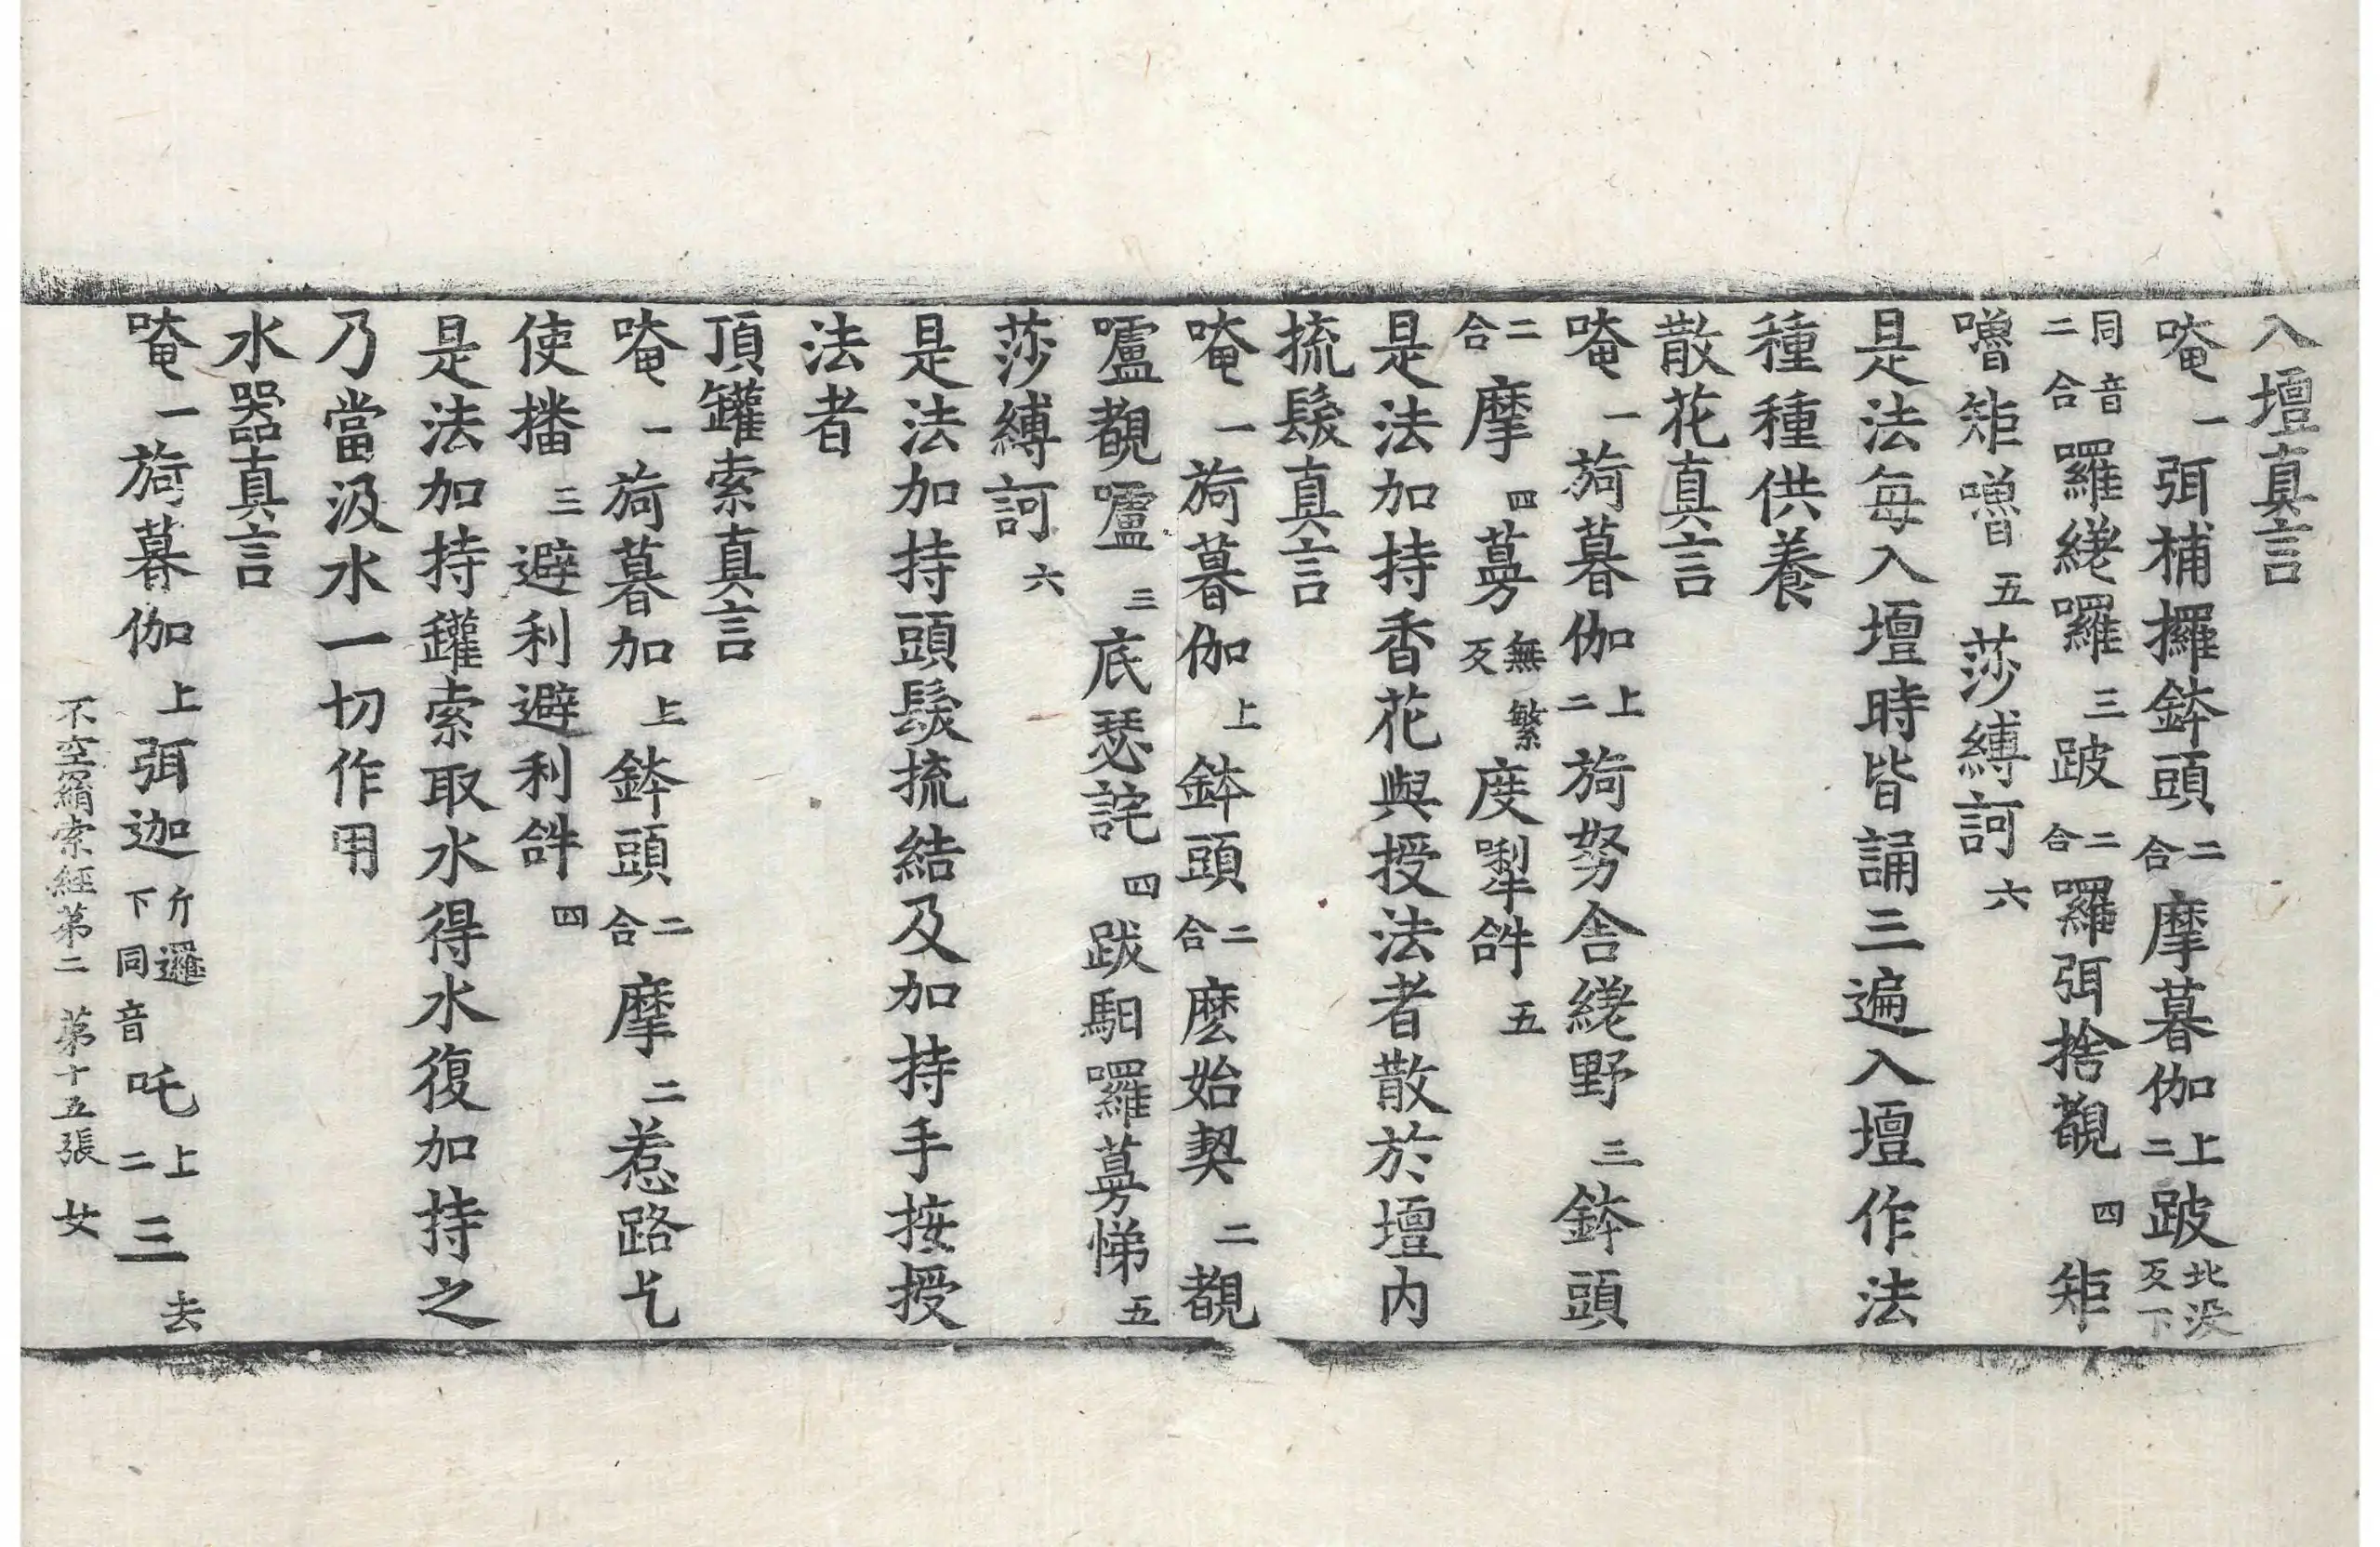 入壇真言
唵一弭補攞鉢頭二合摩暮伽上二跛北没反下
同音二合囉綣囉三跛二合囉弭捨覩四矩
嚕矩嚕五莎縛訶六
是法每入壇時皆誦三遍入壇作法
種種供養
散花真言
唵一旖暮伽上二旖努舍綣野三鉢頭
二合摩四蒡無繁反度㗚𤙖五
是法加持香花與授法者散於壇内
捖髮真言
唵一旖暮伽上鉢頭二合麽始契二覩
嚧覩嚧三底瑟詫四跋馹羅蒡悌五
莎縛訶六
是法加持頭髮梳結及加持手按授
法者
頂罐索真言
唵一旖暮加上鉢頭二合摩二惹路乞
使播三避利避利𤙖四
是法加持罐索取水得水復加持之
乃當汲水一切作用
水器真言
唵一旖暮伽上弭迦斤邏下同音吒上二三去
不空羂索經第二 第十五張 女